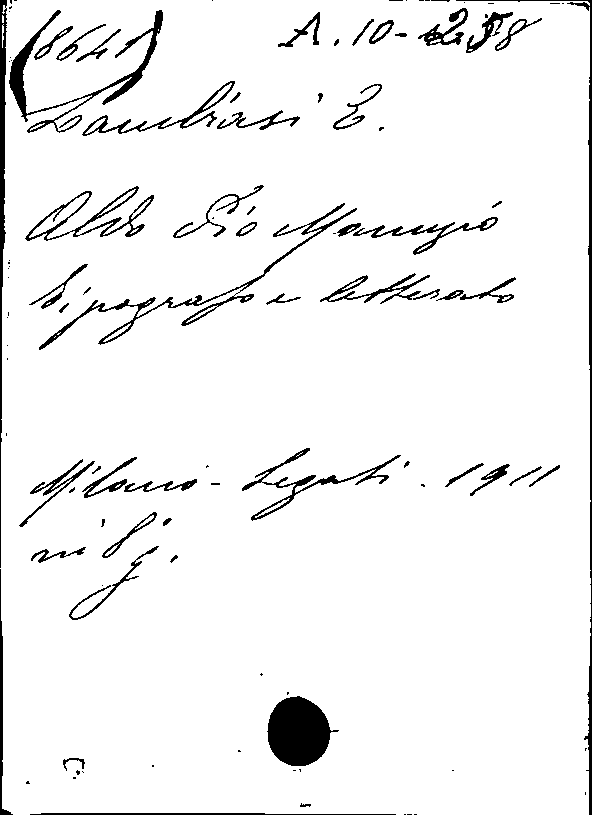 (8641) A. 10-258
Lambrasi E.
Aldo Pio Manuzio
tipografo e letterato
Milano - Legati. 1911
in 8° g.